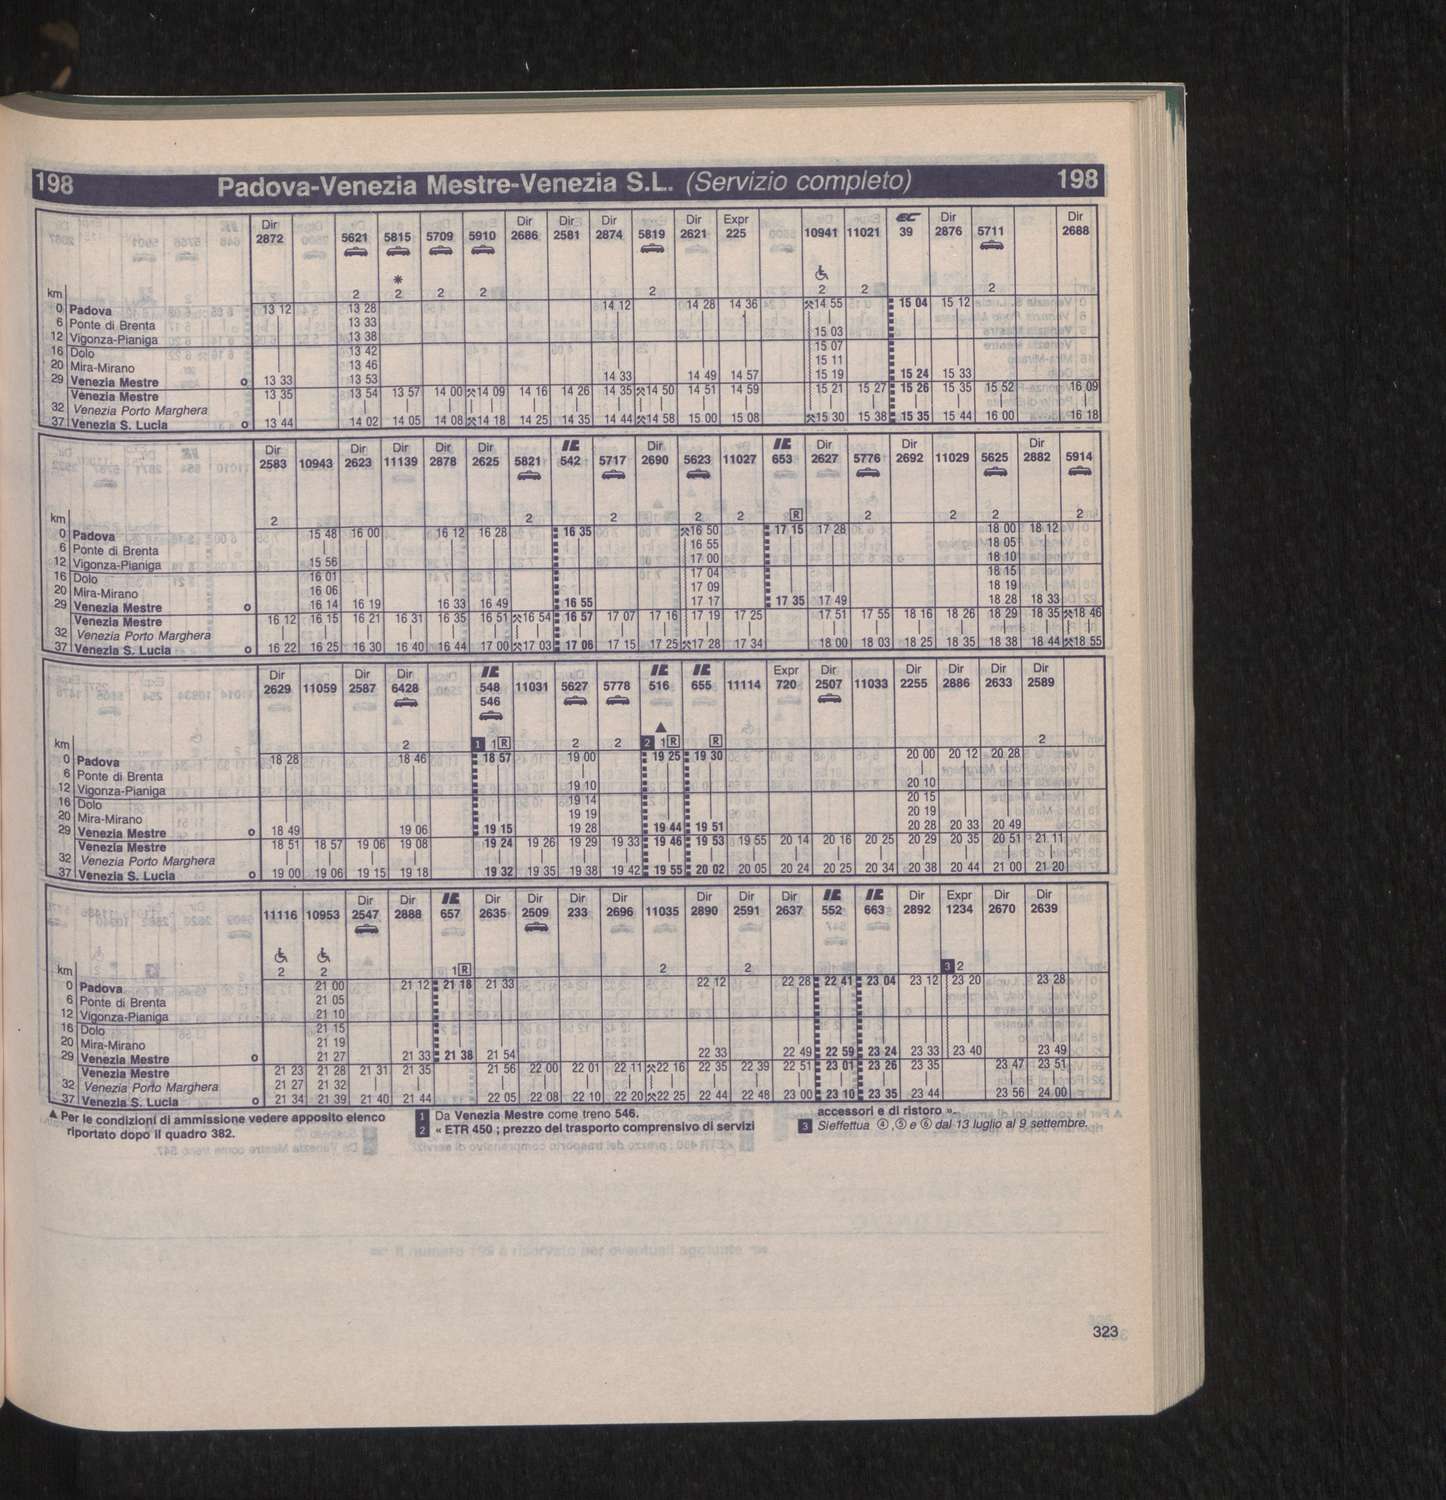 198 Padova-Venezia Mestre-Venezia S.L. (Servizio completo) 198
Dir Dir Dir Dir Dir Expr EC Dir Dir
2872 5621 5815 5709 5910 2686 2581 2874 5819 2621 225 10941 11021 39 2876 5711 2688
*
km 2 2 2 2 2 2 2 2
0 Padova 13 12 13 28 14 12 14 28 14 36 ⚒14 55 15 04 15 12
6 Ponte di Brenta 13 33
12 Vigonza-Pianiga 13 38 15 03
16 Dolo 13 42 15 07
20 Mira-Mirano 13 46 15 11
29 Venezia Mestre o 13 33 13 53 14 33 14 49 14 57 15 19 15 24 15 33
Venezia Mestre 13 35 13 54 13 57 14 00 ⚒14 09 14 16 14 26 14 35 ⚒14 50 14 51 14 59 15 21 15 27 15 26 15 35 15 52 16 09
32 Venezia Porto Marghera
37 Venezia S. Lucia o 13 44 14 02 14 05 14 08 ⚒14 18 14 25 14 35 14 44 ⚒14 58 15 00 15 08 ⚒15 30 15 38 15 35 15 44 16 00 16 18
Dir Dir Dir Dir IC Dir IC Dir Dir Dir
2583 10943 2623 11139 2878 2625 5821 542 5717 2690 5623 11027 653 2627 5776 2692 11029 5625 2882 5914
km 2 2 2 2 2 R 2 2 2 2
0 Padova 15 48 16 00 16 12 16 28 16 35 ⚒16 50 17 15 17 28 18 00 18 12
6 Ponte di Brenta 16 55 18 05
12 Vigonza-Pianiga 15 56 17 00 18 10
16 Dolo 16 01 17 04 18 15
20 Mira-Mirano 16 06 17 09 18 19
29 Venezia Mestre o 16 14 16 19 16 33 16 49 16 55 17 17 17 35 17 49 18 28 18 33
Venezia Mestre 16 12 16 15 16 21 16 31 16 35 16 51 ⚒16 54 16 57 17 07 17 16 17 19 17 25 17 51 17 55 18 16 18 26 18 29 18 35 ⚒18 46
32 Venezia Porto Marghera
37 Venezia S. Lucia o 16 22 16 25 16 30 16 40 16 44 17 00 ⚒17 03 17 06 17 15 17 25 ⚒17 28 17 34 18 00 18 03 18 25 18 35 18 38 18 44 ⚒18 55
Dir Dir Dir IC IC IC Expr Dir Dir Dir Dir Dir
2629 11059 2587 6428 548 11031 5627 5778 516 655 11114 720 2507 11033 2255 2886 2633 2589
546
▲
km 2 1 1 R 2 2 2 1 R R 2
0 Padova 18 28 18 46 18 57 19 00 19 25 19 30 20 00 20 12 20 28
6 Ponte di Brenta
12 Vigonza-Pianiga 19 10 20 10
16 Dolo 19 14 20 15
20 Mira-Mirano 19 19 20 19
29 Venezia Mestre o 18 49 19 06 19 15 19 28 19 44 19 51 20 28 20 33 20 49
Venezia Mestre 18 51 18 57 19 06 19 08 19 24 19 26 19 29 19 33 19 46 19 53 19 55 20 14 20 16 20 25 20 29 20 35 20 51 21 11
32 Venezia Porto Marghera
37 Venezia S. Lucia o 19 00 19 06 19 15 19 18 19 32 19 35 19 38 19 42 19 55 20 02 20 05 20 24 20 25 20 34 20 38 20 44 21 00 21 20
Dir Dir IC Dir Dir Dir Dir Dir Dir Dir IC IC Dir Expr Dir Dir
11116 10953 2547 2888 657 2635 2509 233 2696 11035 2890 2591 2637 552 663 2892 1234 2670 2639
km 2 2 1 R 2 2 3 2
0 Padova 21 00 21 12 21 18 21 33 22 12 22 28 22 41 23 04 23 12 23 20 23 28
6 Ponte di Brenta 21 05
12 Vigonza-Pianiga 21 10
16 Dolo 21 15
20 Mira-Mirano 21 19
29 Venezia Mestre o 21 27 21 33 21 38 21 54 22 33 22 49 22 59 23 24 23 33 23 40 23 49
Venezia Mestre 21 23 21 28 21 31 21 35 21 56 22 00 22 01 22 11 ⚒22 16 22 35 22 39 22 51 23 01 23 26 23 35 23 47 23 51
32 Venezia Porto Marghera 21 27 21 32
37 Venezia S. Lucia o 21 34 21 39 21 40 21 44 22 05 22 08 22 10 22 20 ⚒22 25 22 44 22 48 23 00 23 10 23 35 23 44 23 56 24 00
▲ Per le condizioni di ammissione vedere apposito elenco
riportato dopo il quadro 382.
1 Da Venezia Mestre come treno 546.
2 « ETR 450 ; prezzo del trasporto comprensivo di servizi
accessori e di ristoro ».
3 Sieffettua ④,⑤ e ⑥ dal 13 luglio al 9 settembre.
323